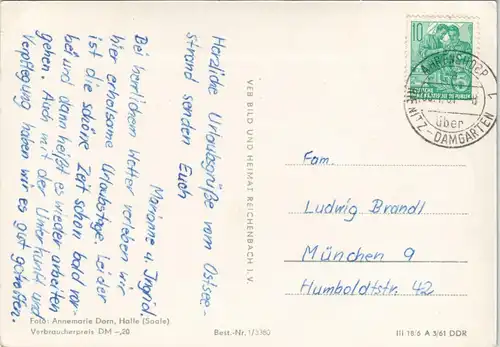 Herzliche Urlaubsgrüße vom Ostsee-
strand senden Euch
Marianne u. Ingrid.
Bei herrlichem Wetter verleben wir
hier erholsame Urlaubstage. Leider
ist die schöne Zeit schon bald vor-
bei und dann heißt es wieder arbeiten
gehen. Auch mit der Unterkunft und
Verpflegung haben wir es gut getroffen.
Foto: Annemarie Dorn, Halle (Saale)
Verbraucherpreis DM -,20
VEB BILD UND HEIMAT REICHENBACH I. V.
Best.-Nr. 1/3360
10
AHRENSHOOP
über
RIBNITZ-DAMGARTEN
Fam.
Ludwig Brandl
München 9
Humboldtstr. 42
III 18/6 A 3/61 DDR